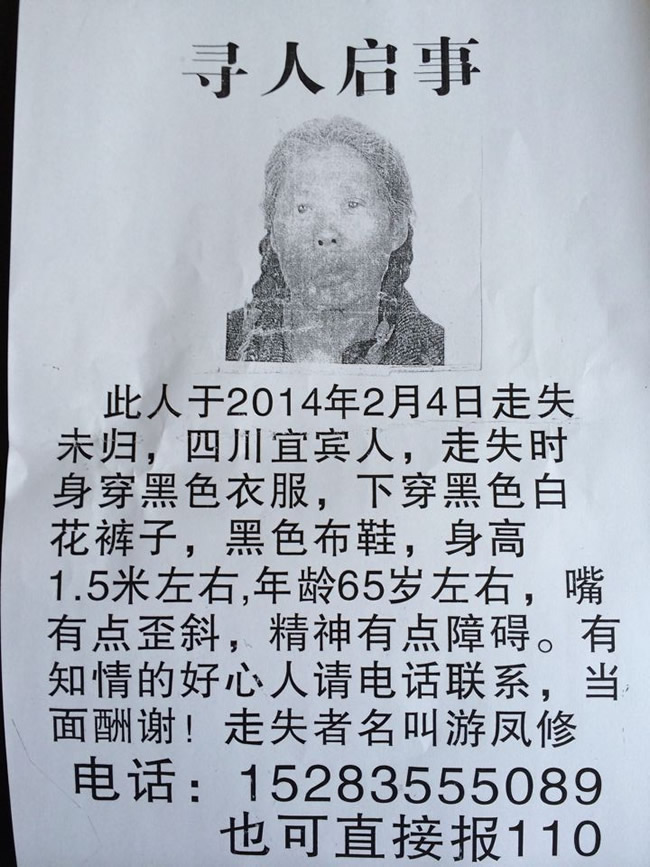 寻人启事
此人于2014年2月4日走失
未归，四川宜宾人，走失时
身穿黑色衣服，下穿黑色白
花裤子，黑色布鞋，身高
1.5米左右,年龄65岁左右，嘴
有点歪斜，精神有点障碍。有
知情的好心人请电话联系，当
面酬谢！走失者名叫游凤修
电话：15283555089
也可直接报110